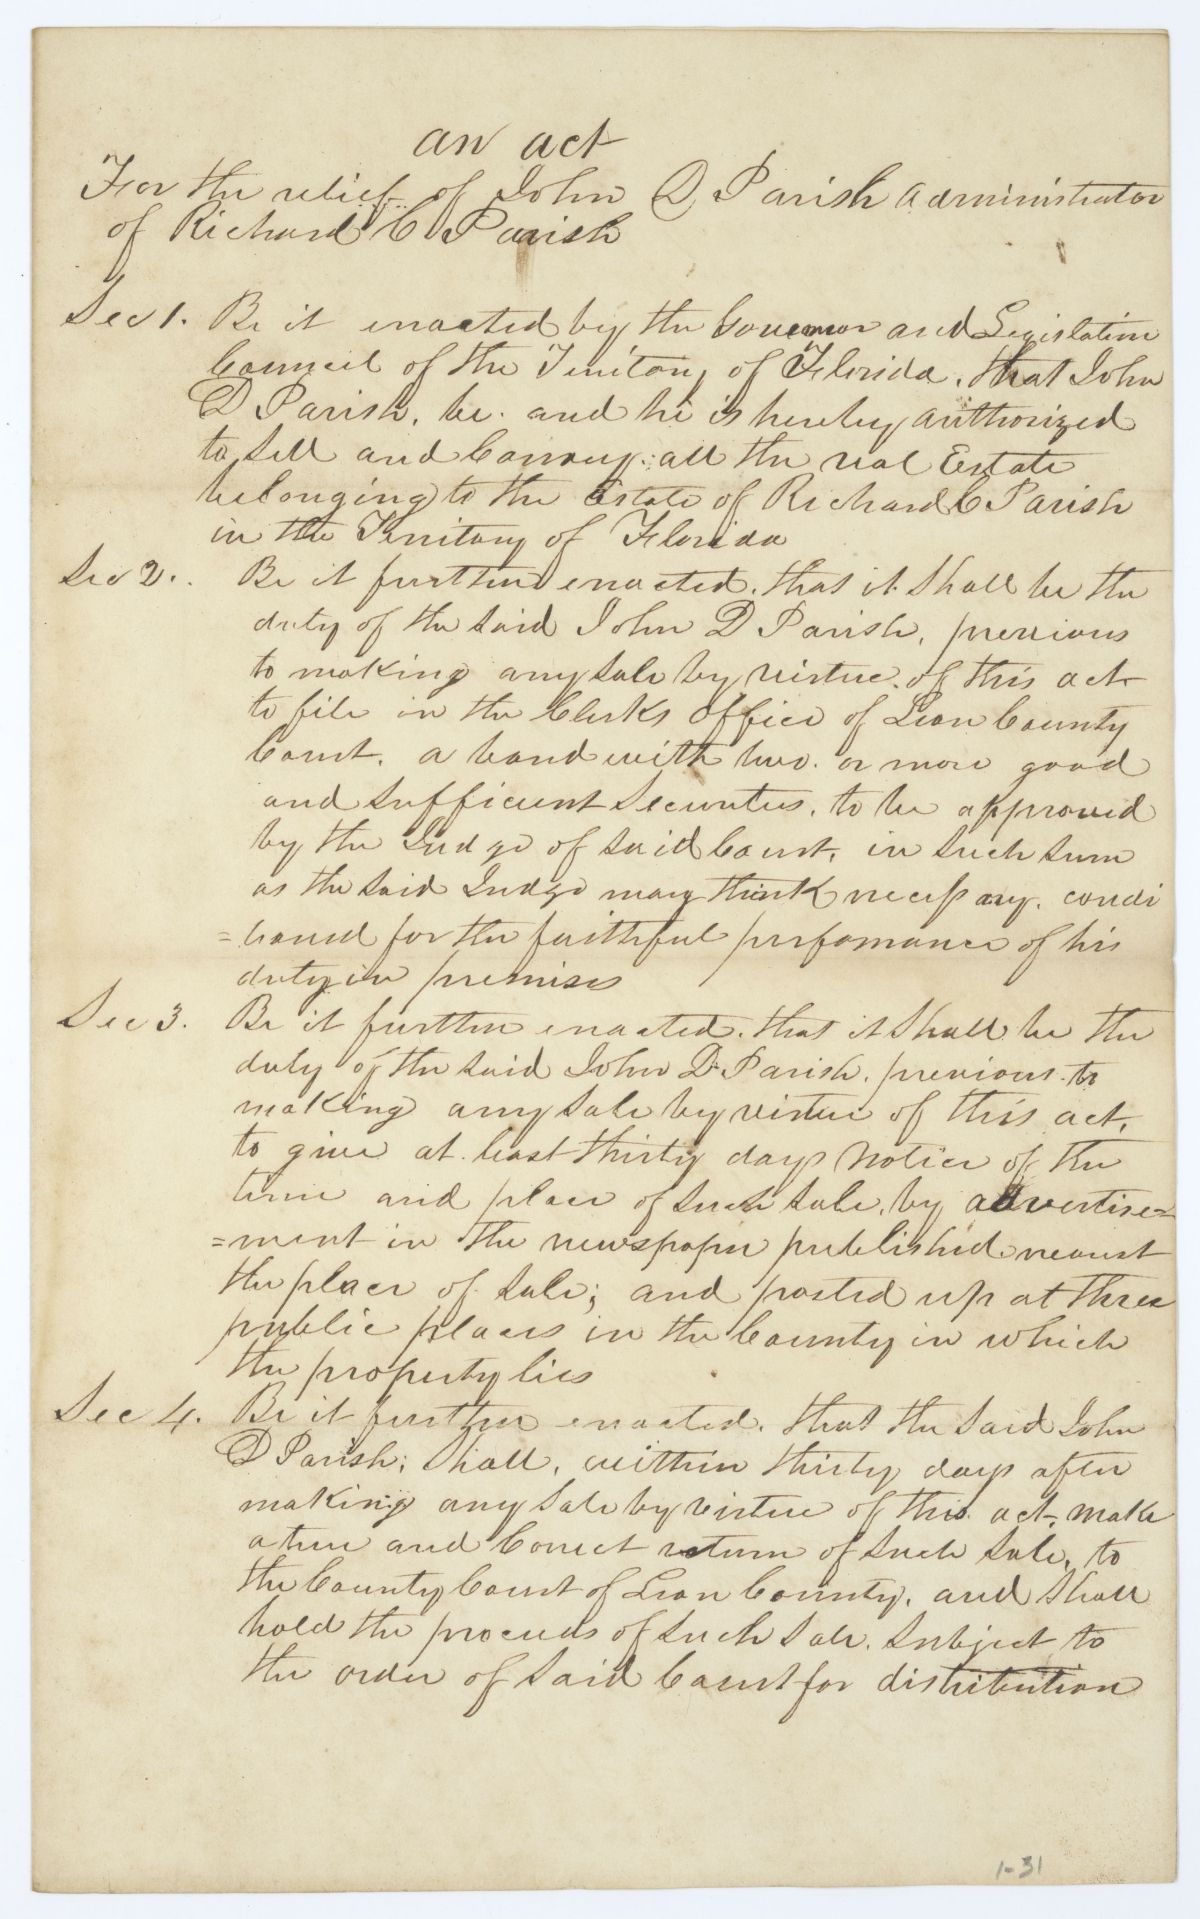 an act
For the relief of John D Parish administrator
of Richard C Parish
Sec 1. Be it enacted by the Governor and Legislative
Council of the Territory of Florida, that John
D Parish, be. and he is hereby authorized
to sell and Convey. all the real Estate
belonging to the Estate of Richard C Parish
in the Territory of Florida
Sec 2. Be it further enacted. that it shall be the
duty of the said John D Parish, previous
to making any sale by virtue of this act
to file in the Clerks office of Leon County
Court, a bond with two. or more good
and sufficient Securities, to be approved
by the Judge of said Court, in such sum
as the said Judge may think necessary. condi
=tioned for the faithful perfomance of his
duty in premises
Sec 3. Be it further enacted. that it shall be the
duty of the said John D Parish. previous to
making any sale by virtue of this act,
to give at least thirty days Notice of the
time and place of such sale, by advertise=
=ment in the newspaper published nearest
the place of sale; and posted up at three
public places in the County in which
the property lies
Sec 4. Be it further enacted. that the said John
D Parish; shall, within thirty days after
making any sale by virtue of this act, make
a true and Correct return of such sale, to
the County Court of Leon County, and shall
hold the proceeds of such sale. subject to
the order of said Court for distribution
1-31